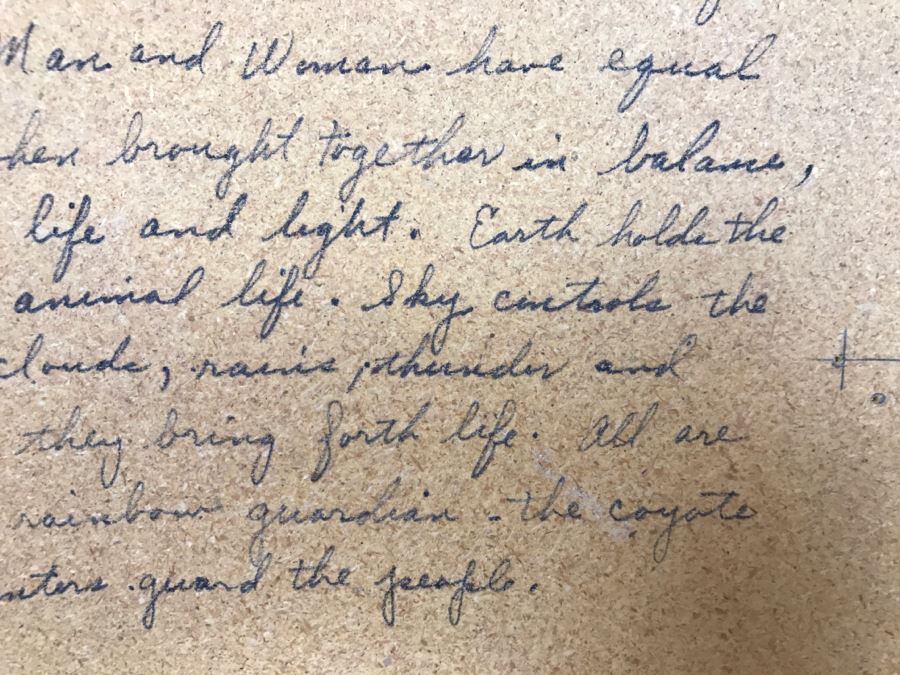 Man and Woman have equal
hen brought together in balance,
life and light. Earth holds the
animal life. Sky controls the
clouds, rains, thunder and
they bring forth life. All are
rainbow guardian - the coyote
nters guard the people.